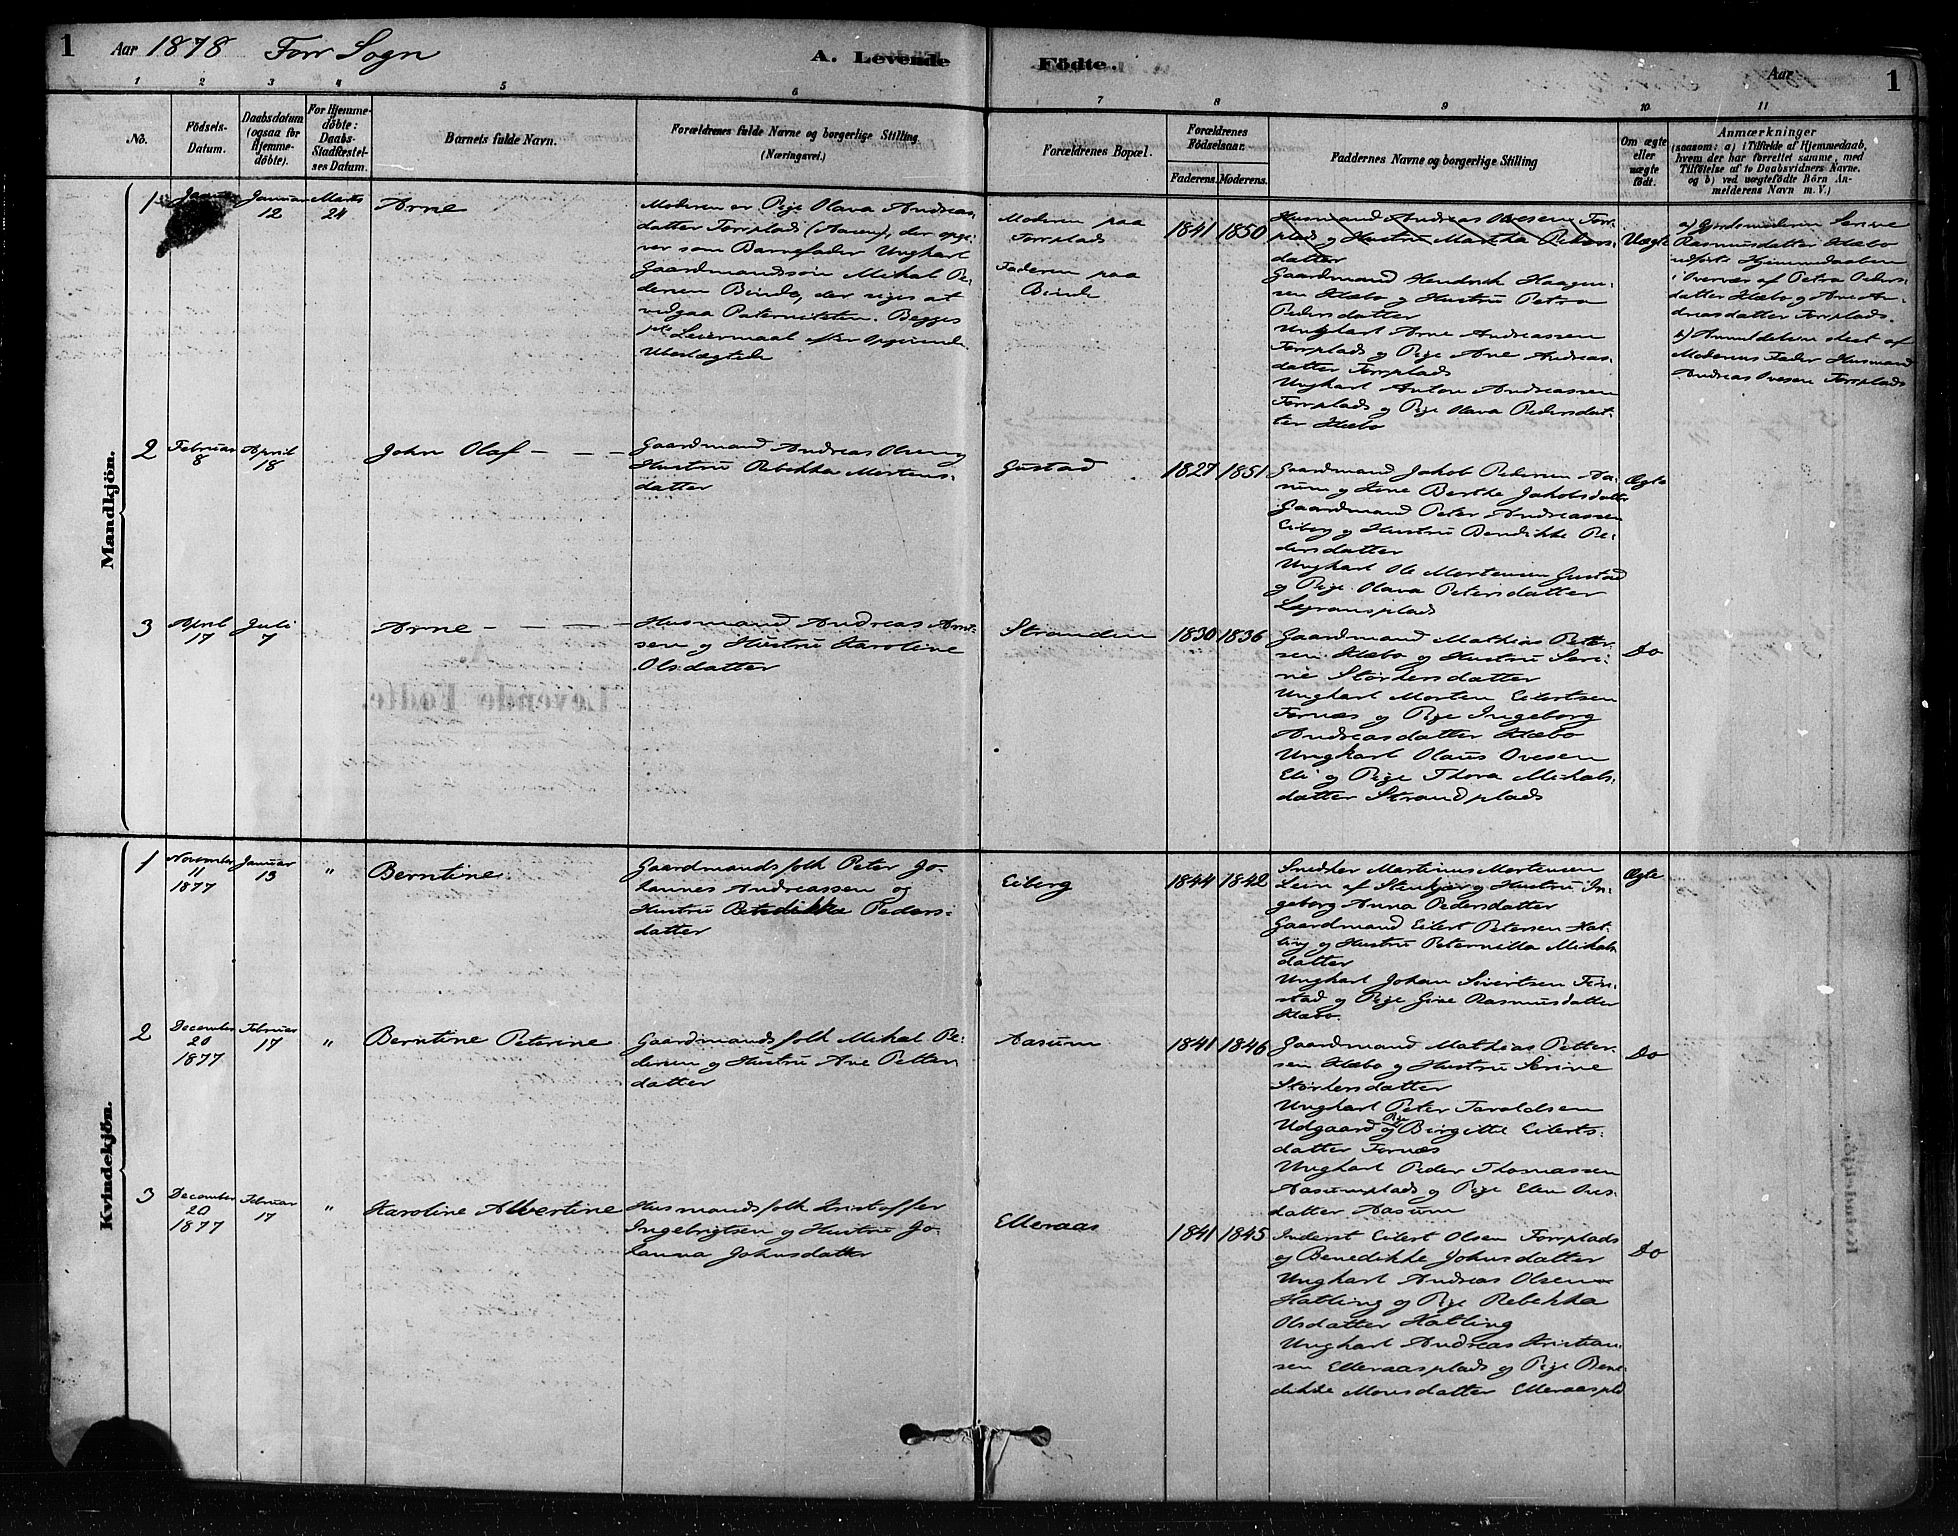 1 Aar 1878 Forr Sogn A. Levende Födte. Aar 1
1 2 3 4 5 6 7 8 9 10 11
No.
Födsels-
Datum.
Daabsdatum
(ogsaa for
Hjemme-
döbte).
For Hjemme-
døbte:
Daabs-
Stadfæstel-
ses Datum.
Barnets fulde Navn.
Forældrenes fulde Navne og borgerlige Stilling
(Næringsvei.)
Forældrenes Bopæl.
Forældrenes
Födselsaar.
Faderens. Moderens.
Faddernes Navne og borgerlige Stilling
Om ægte
eller
uægte
født.
Anmærkninger
(saasom: a) i Tilfælde af Hjemmedaab,
hvem der har forrettet samme, med
Tilföielse af to Daabsvidners Navne,
og b) ved uægtefödte Börn An-
melderens Navn m. V.)
Mandkjön.
1
Januar
12
Marts
24
Arne
Moderen er Pige Olava Andreas-
datter Forrplads (Aasen), der opgi-
ver som Barnefader Ungkarl
Gaardmandssøn Mikal Pe-
dersen Beinde, der siges at
vedgaa Paterniteten. Begges
Leiermaal efter Opgivende
Moderen paa
Forrplads
Faderen paa
Beinde
1841 1850
Husmand Andreas Ovesen Forr-
plads og Hustru Martha Peders-
datter
Gaardmand Hendrik Haagen-
sen Hæbo og Hustru Petra
Pedersdatter
Ungkarl Arne Andreassen
Forrplads og Pige Ane Andreas-
datter Forrplads
Ungkarl Anton Andreassen
Forrplads og Pige Olava Pedersdat-
ter Hæbo
Uægte
a) Gjordemoderen Serine
Rasmusdatter Hæbo
udførte Hjemmedaaben
i Overvær af Petra Peders-
datter Hæbo og Ane An-
dreasdatter Forrplads.
b) Anmeldelsen skeet af
Moderens Fader Husmand
Andreas Ovesen Forrplads
2
Februar
8
April
18
John Olaf - - -
Gaardmand Andreas Olsen og
Hustru Rebekka Mortens-
datter
Gustad
1827 1851
Gaardmand Jakob Pedersen Aa-
sum og Kone Berthe Jakobsdatter
Gaardmand Peter Andreassen
Eiberg og Hustru Bendikke Pe-
dersdatter
Ungkarl Ole Mortensen Gustad
og Pige Olava Petersdatter
Ægte
3
April
17
Juli
7
Arne - - - -
Husmand Andreas Arnt-
sen og Hustru Karoline
Olsdatter
Stranden
1830 1836
Gaardmand Mathias Petter-
sen Hæbo og Hustru Seri-
ne Størkersdatter
Ungkarl Morten Eilertsen
Fornæs og Pige Ingeborg
Andreasdatter Hæbo
Ungkarl Olaus Ovesen
Eli og Pige Thora Mikals-
datter Strandplads
Do
Kvindekjön.
1
November
11
1877
Januar
13
"
Berntine
Gaardmandsfolk Peter Jo-
hannes Andreassen og
Hustru Benedikka Peders-
datter
Eiberg
1844 1842
Snedker Martinus Mortensen
Lein af Stenkjær og Hustru In-
geborg Anna Pedersdatter
Gaardmand Eilert Petersen Hat-
ling og Hustru Peternilla Mikals-
datter
Ungkarl Johan Sivertsen Forr-
stad og Pige Gine Rasmusdatter
Hæbo
Ægte
2
December
20
1877
Februar
17
"
Berntine Peterine
Gaardmandsfolk Mikal Pe-
dersen og Hustru Ane Petter-
datter
Aasum
1841 1846
Gaardmand Mathias Petter-
sen Hæbo og Hustru Serine
Størkersdatter
Ungkarl Peter Taraldsen
Udgaard og Pige Birgitte Eilerts-
datter Fornæs
Ungkarl Peder Thomassen
Aasumplads og Pige Elen Ovs-
datter Aasum
Do
3
December
20
1877
Februar
17
"
Karoline Albertine
Husmandsfolk Kristoffer
Ingebrigtsen og Hustru Jo-
hanna Johnsdatter
Elleraas
1841 1845
Inderst Eilert Olsen Forrplads
og Benedikke Johnsdatter
Ungkarl Andreas Olsen
Hatling og Pige Rebekka
Olsdatter Hatling
Ungkarl Andreas Kristian-
sen Elleraasplads og Pige Bene-
dikke Monsdatter Elleraaspld
Do